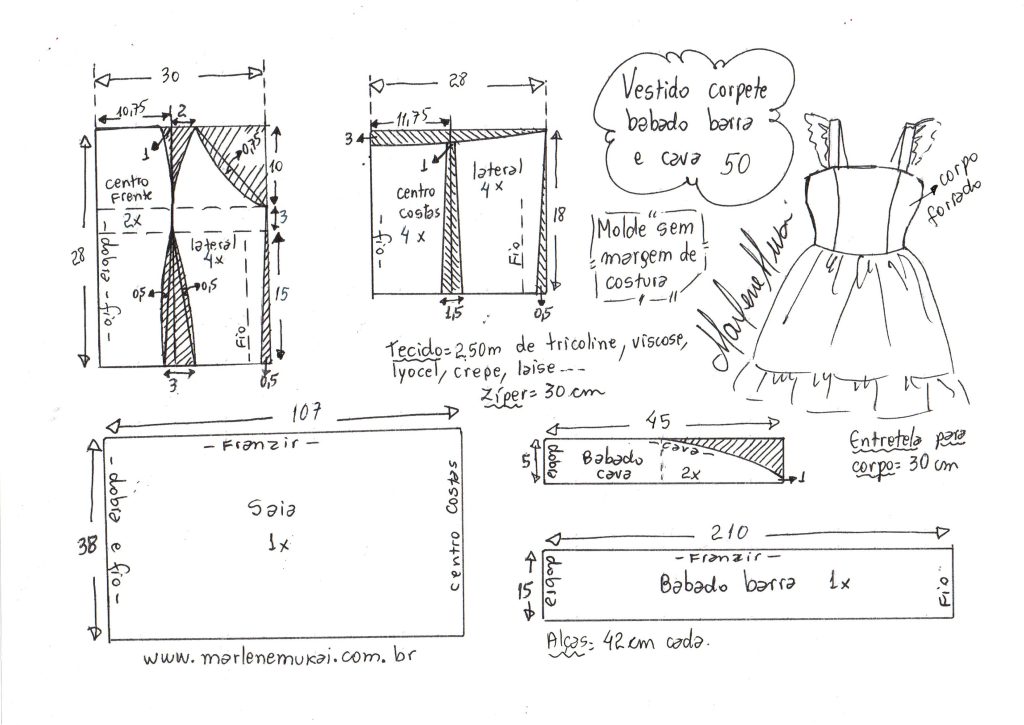 30
10,75
2
1
0,75
10
centro
Frente
2x
3
28
- dobra - fio -
lateral
4x
0,5
0,5
Fio
15
3
0,5
28
11,75
3
1
lateral
4x
centro
costas
4x
- fio -
Fio
18
1,5
0,5
Vestido corpete
babado barra
e cava 50
Molde sem
margem de
costura
corpo
forrado
Marlene Mukai.
Tecido = 2,50m de tricoline, viscose,
lyocel, crepe, laise ---
Zíper = 30 cm
107
- Franzir -
38
- dobra e fio -
Saia
1x
centro costas
45
5
dobra
Babado
cava
- cava -
2x
1
Entretela para
corpo = 30 cm
210
- Franzir -
15
dobra
Babado barra 1x
Fio
Alças = 42 cm cada.
www.marlenemukai.com.br